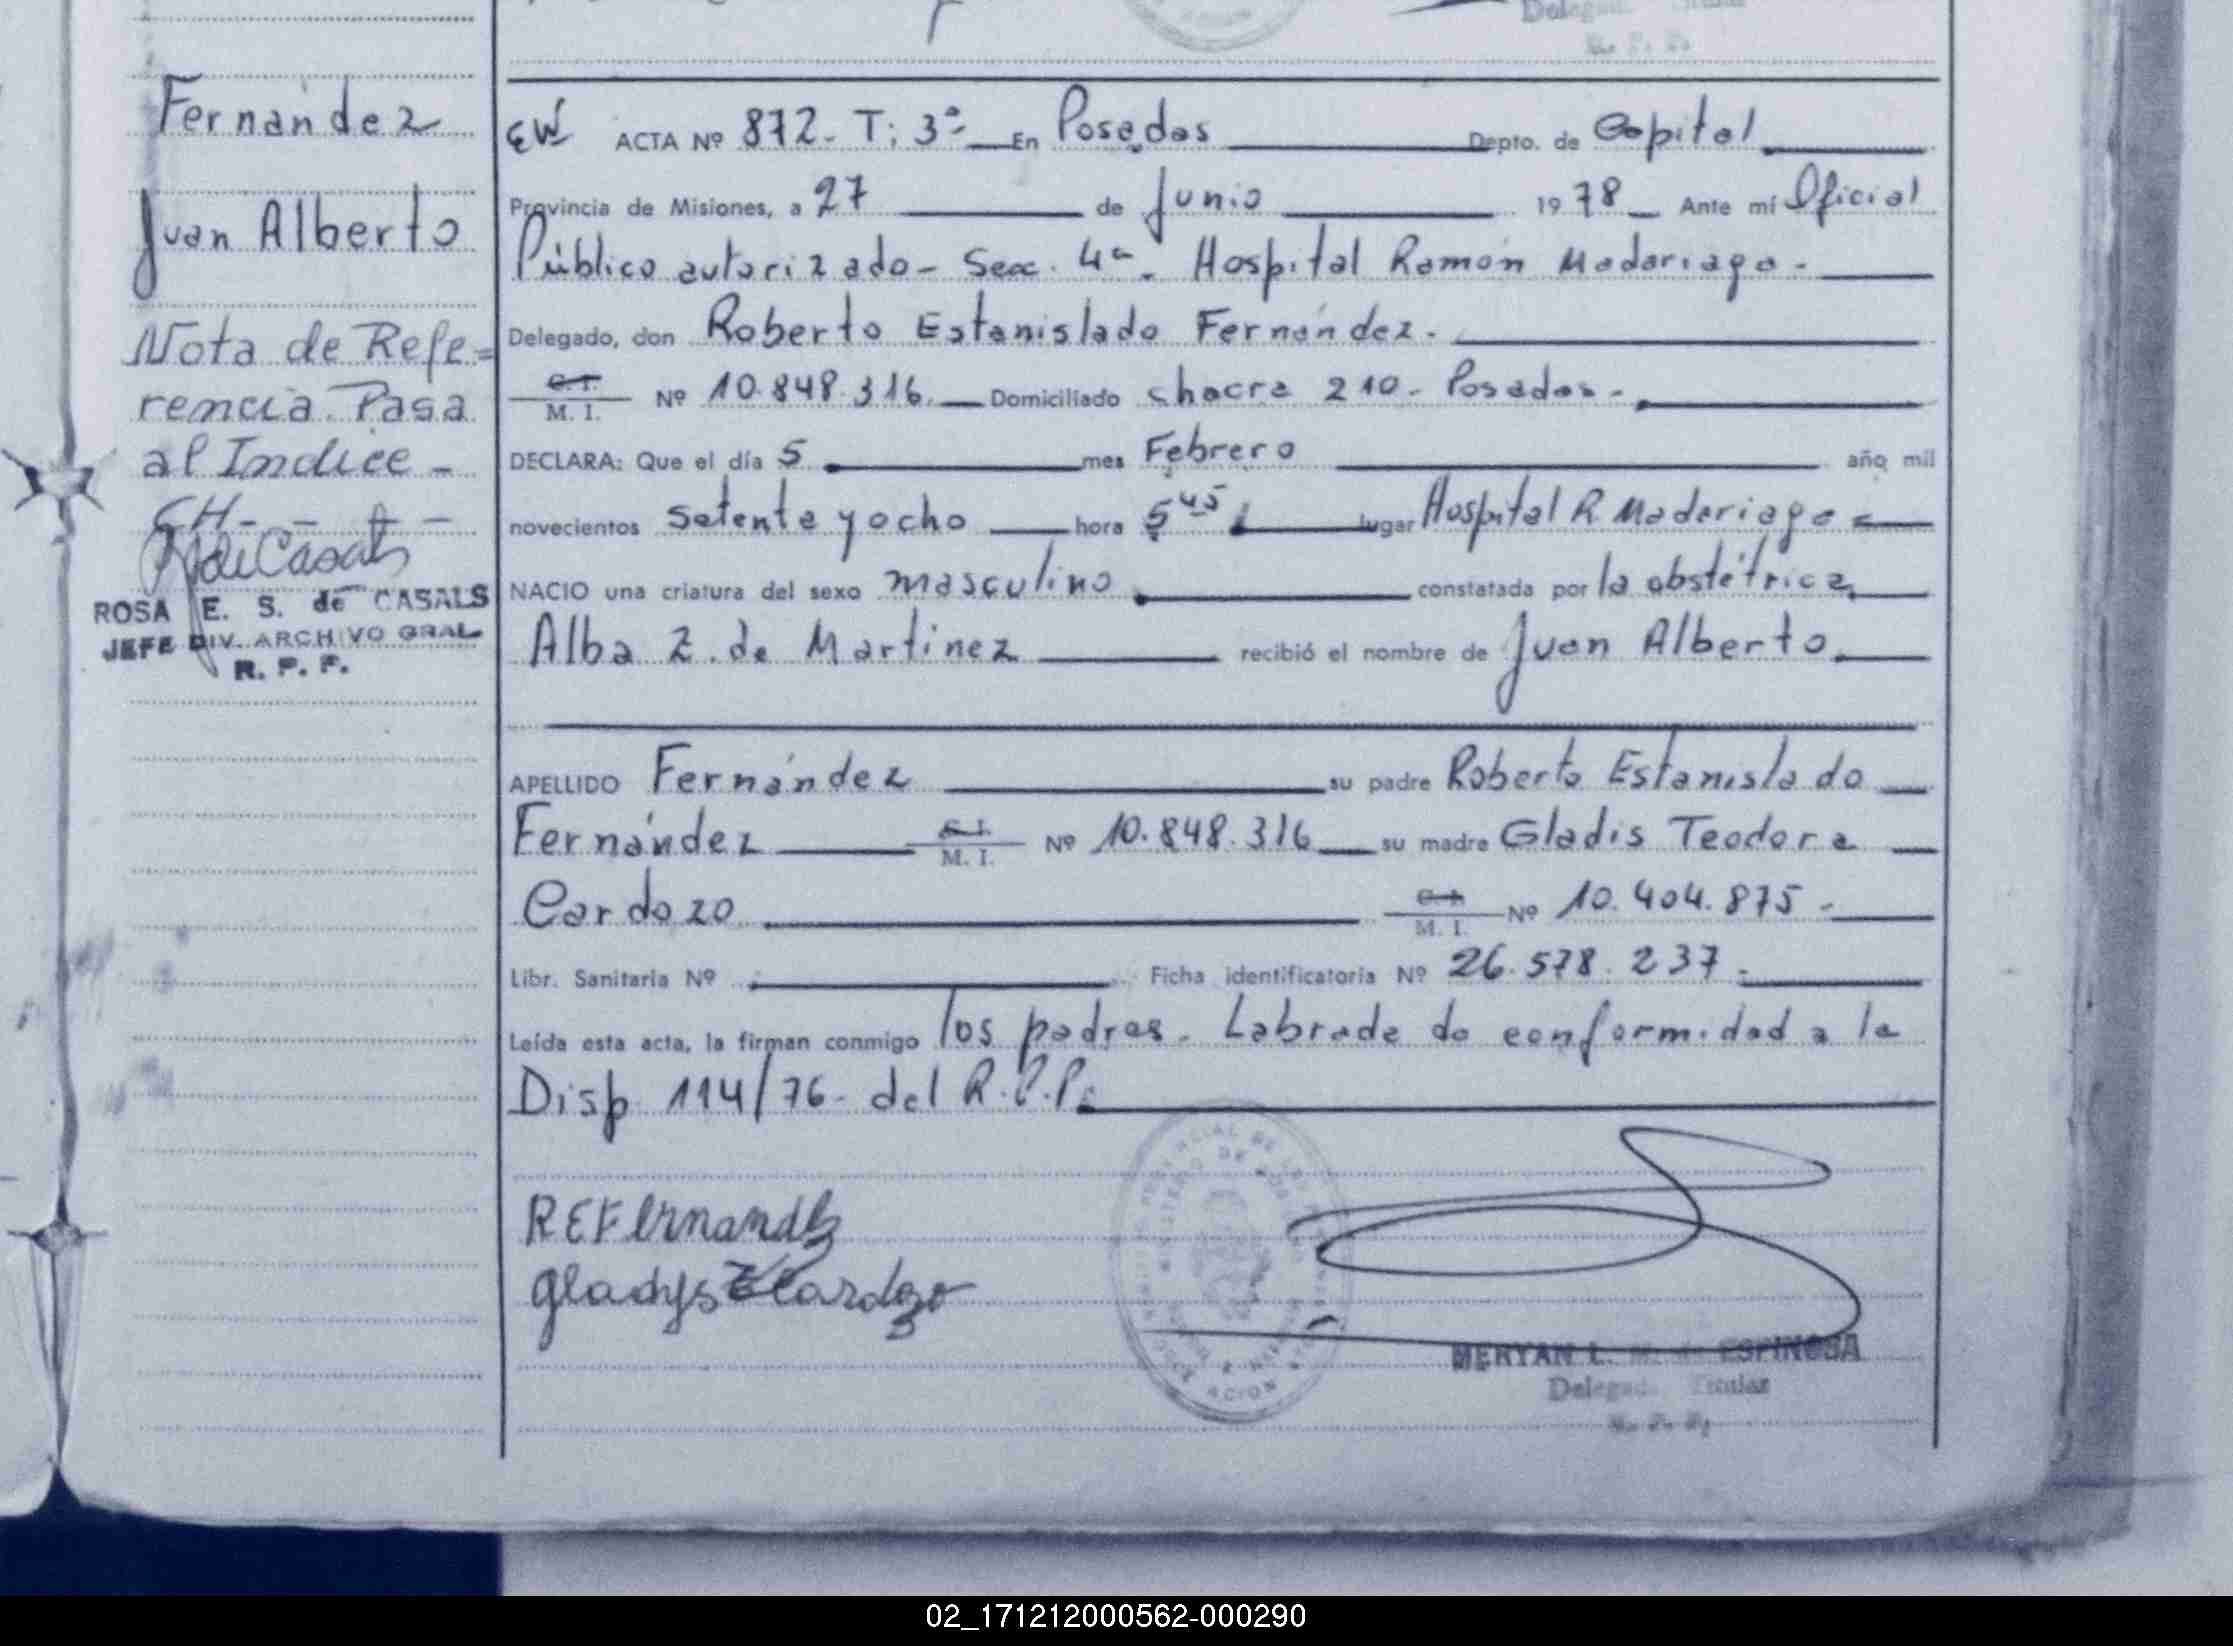 Fernández
Juan Alberto
Nota de Refe=
rencia. Pasa
al Indice -
CH- - - -
ROSA E. S. de CASALS
JEFE DIV. ARCHIVO GRAL
R. P. P.
Delegad. Titular
R. P. P.
ACTA Nº 872- T: 3º- En Posadas Depto. de Capital
Provincia de Misiones, a 27 de Junio 1978 Ante mí Oficial
Público autorizado- Secc. 4ª. Hospital Ramón Madariaga-
Delegado, don Roberto Estanislado Fernández.
C. I.
M. I. Nº 10.848.316. Domiciliado chacra 210- Posadas-
DECLARA: Que el día 5 mes Febrero año mil
novecientos setenta y ocho hora 5 45 lugar Hospital R Madariaga
NACIO una criatura del sexo masculino constatada por la obstétrica
Alba Z. de Martinez recibió el nombre de Juan Alberto
APELLIDO Fernández su padre Roberto Estanislado
Fernández C. I. M. I. Nº 10.848.316 su madre Gladis Teodora
Cardozo C. I. M. I. Nº 10.404.875-
Libr. Sanitaria Nº Ficha identificatoria Nº 26.578.237-
Leída esta acta, la firman conmigo los padres. Labrada de conformidad a la
Disp 114/76- del R.P.P.
REFernandez
gladys Cardozo
MERYAN L. M. de ESPINOSA
Delegad. Titular
R. P. P.
02_171212000562-000290